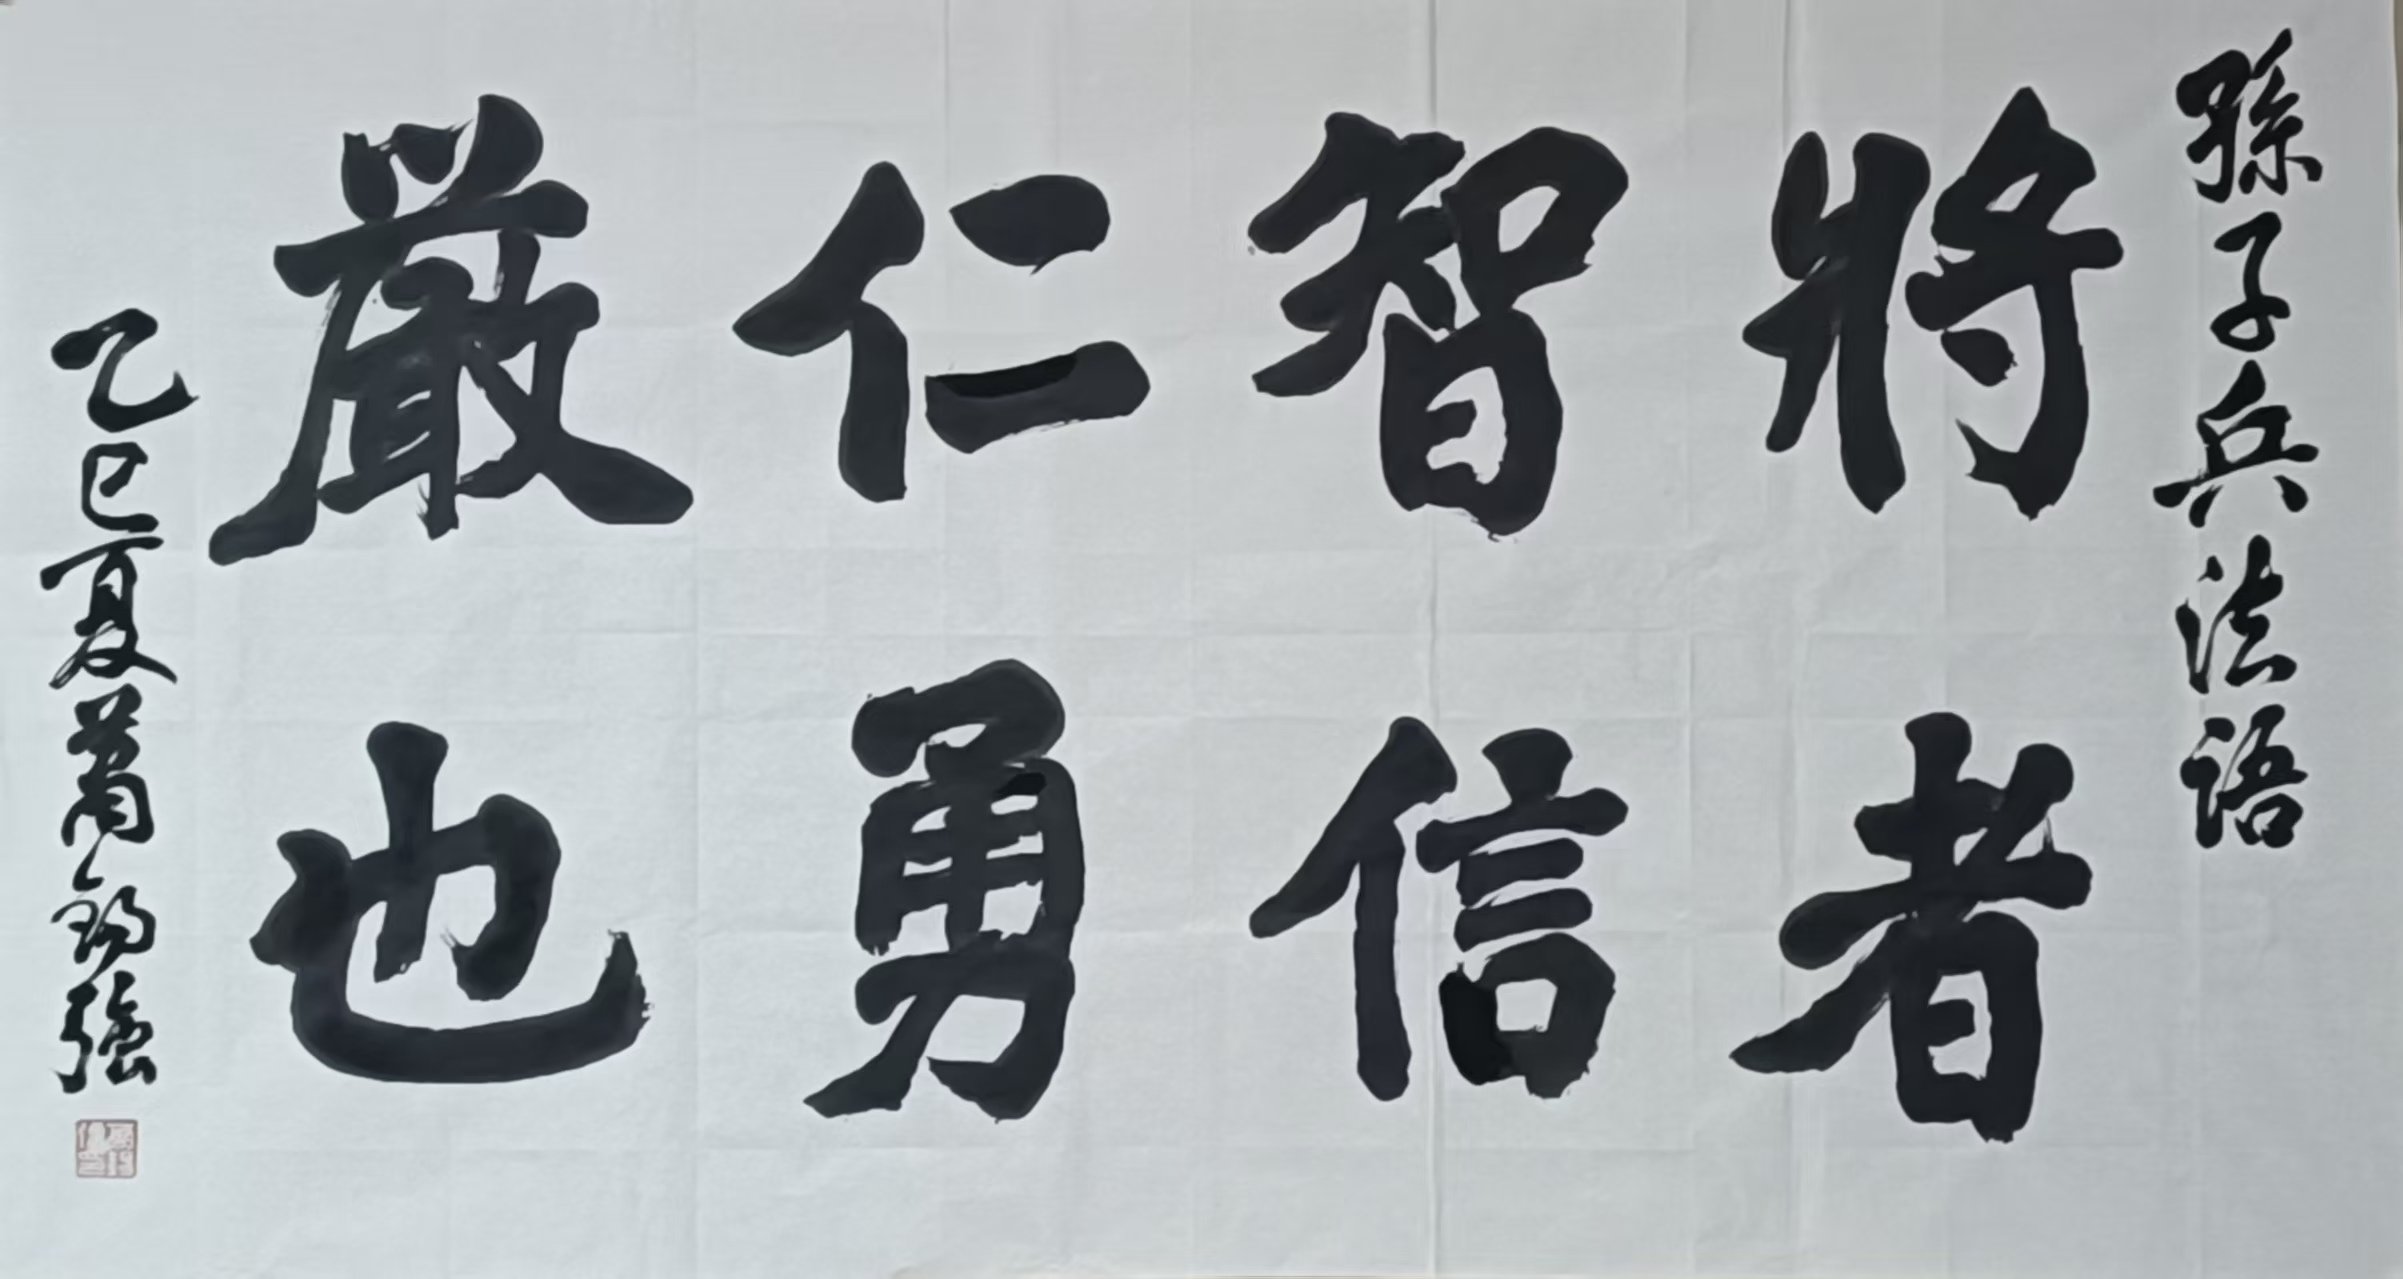 孫子兵法語
將者
智信
仁勇
嚴也
乙巳夏蕭錫强